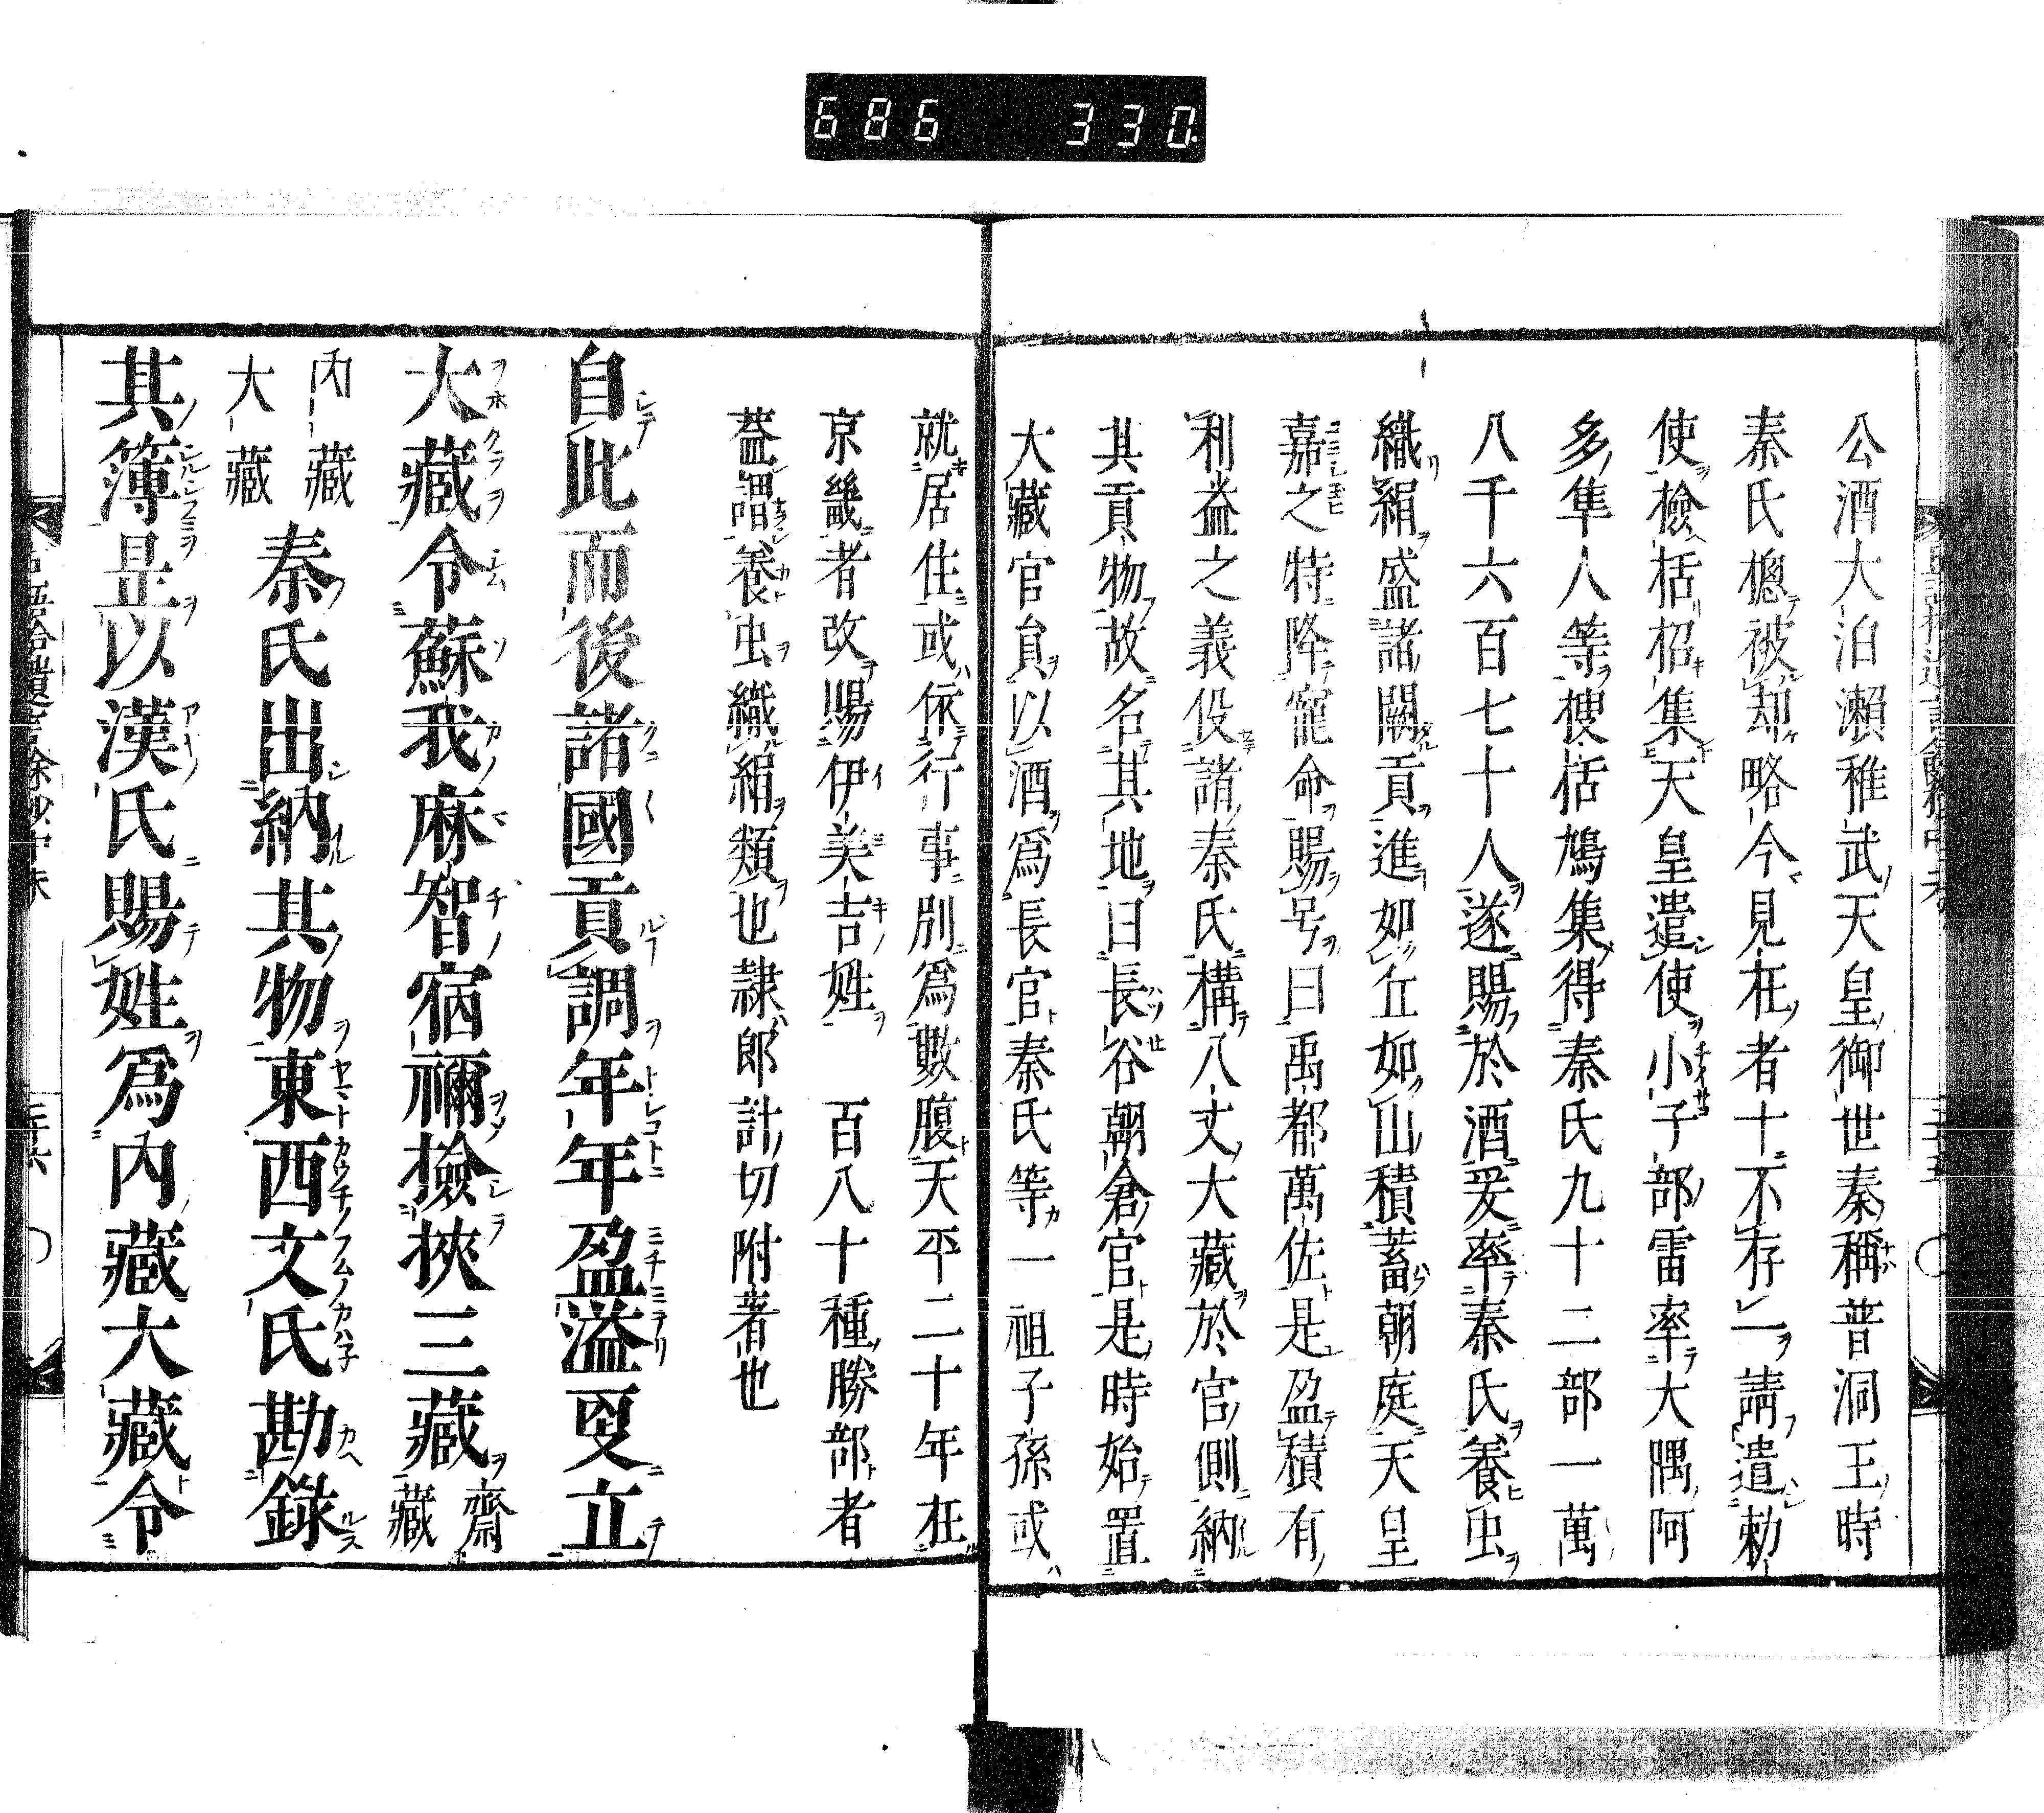 686 330
公酒大泊瀬稚武天皇御世秦稱普洞王時
秦氏樬被却略今見在者十不存一請遣勅
使檢括招集天皇遣使小子部雷率大隅阿
多隼人等捜括鳩集得秦氏九十二部一萬
八千六百七十人遂賜於酒爰率秦氏養虫
織絹盛諸闕貢進如丘如山積蓄朝庭天皇
嘉之特降寵命賜号曰禹都萬佐是盈積有
利益之義役諸秦氏構八丈大藏於官側納
其貢物故名其地曰長谷朝倉官是時始置
大藏官員以酒爲長官秦氏等一祖子孫或
就居住或依行事別爲數腹天平二十年在
京畿者改賜伊美吉姓 百八十種勝部者
葢謂養虫織絹類也隷郎計切附著也
自此而後諸國貢調年年盈溢更立
大藏令蘇我麻智宿禰撿挾三藏齋藏
内藏大藏秦氏出納其物東西文氏勘錄
其簿是以漢氏賜姓爲内藏大藏令